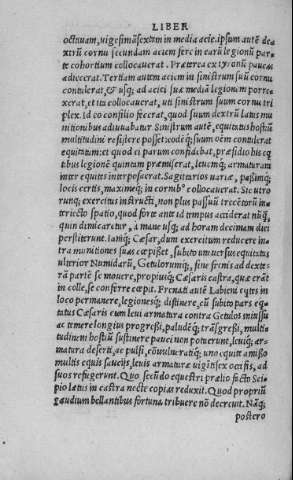 LIBER
octauam, uigesimā sextam in media acie. ipsum autē de
xtrū cornu secundam aciem fere in earū legionū par-
te cohortium collocauerat. Præterea ex tyronū paucas
adiecerat. Tertiam autem aciem in sinistrum suū cornu
contulerat, & usq; ad aciei suæ mediā legionem porre
xerat, et ita collocauerat, uti sinistrum suum cornu tri
plex. id eo consilio fecerat, quod suum dextrū latus mu
nitionibus adiuuabatur. Sinistrum autē, equitatus hostiū
multitudini resistere posset: eodéq; suum oēm contulerat
equitatum: et quod ei parum confidebat, præsidio his eq
tibus legionē quintam præmiserat, leuemq; armaturam
inter equites interposuerat. Sagittarios uariæ, passimq;
locis certis, maximeq; in cornub⁹ collocauerat. Sic utro
runq; exercitus instructi, non plus passuū trecētorū in
teriecto spatio, quod forte ante id tempus acciderat nūq̄,
quin dimicaretur, a mane usq; ad horam decimam diei
perstiterunt. Iamq; Cæsar, dum exercitum reducere in-
tra munitiones suas cœpisset, subito uniuersus equitatus
ulterior Numidarū, Getulorumq;, sine frenis ad dexte-
rā partē se mouere, propiusq; Cæsaris castra, quæ erāt
in colle, se conferre cœpit. Frenati autē Labieni eqtes in
loco permanere, legionesq; distinere, cū subito pars eq
tatus Cæsaris cum leui armatura contra Getulos iniussu
ac temere longius progressi, paludéq; trāsgressi, multi-
tudinem hostiū sustinere pauci non potuerunt, leuiq; ar-
matura deserti, ac pulsi, cōuulneratiq; uno equite amisso
multis equis sauciis, leuis armaturæ uigītisex occisis, ad
suos refugerunt. Quo secūdo equestri prælio facto Sci-
pio lætus in castra nocte copias reduxit. Quod propriū
gaudium bellantibus fortuna tribuere nō decreuit. Nāq;
postero